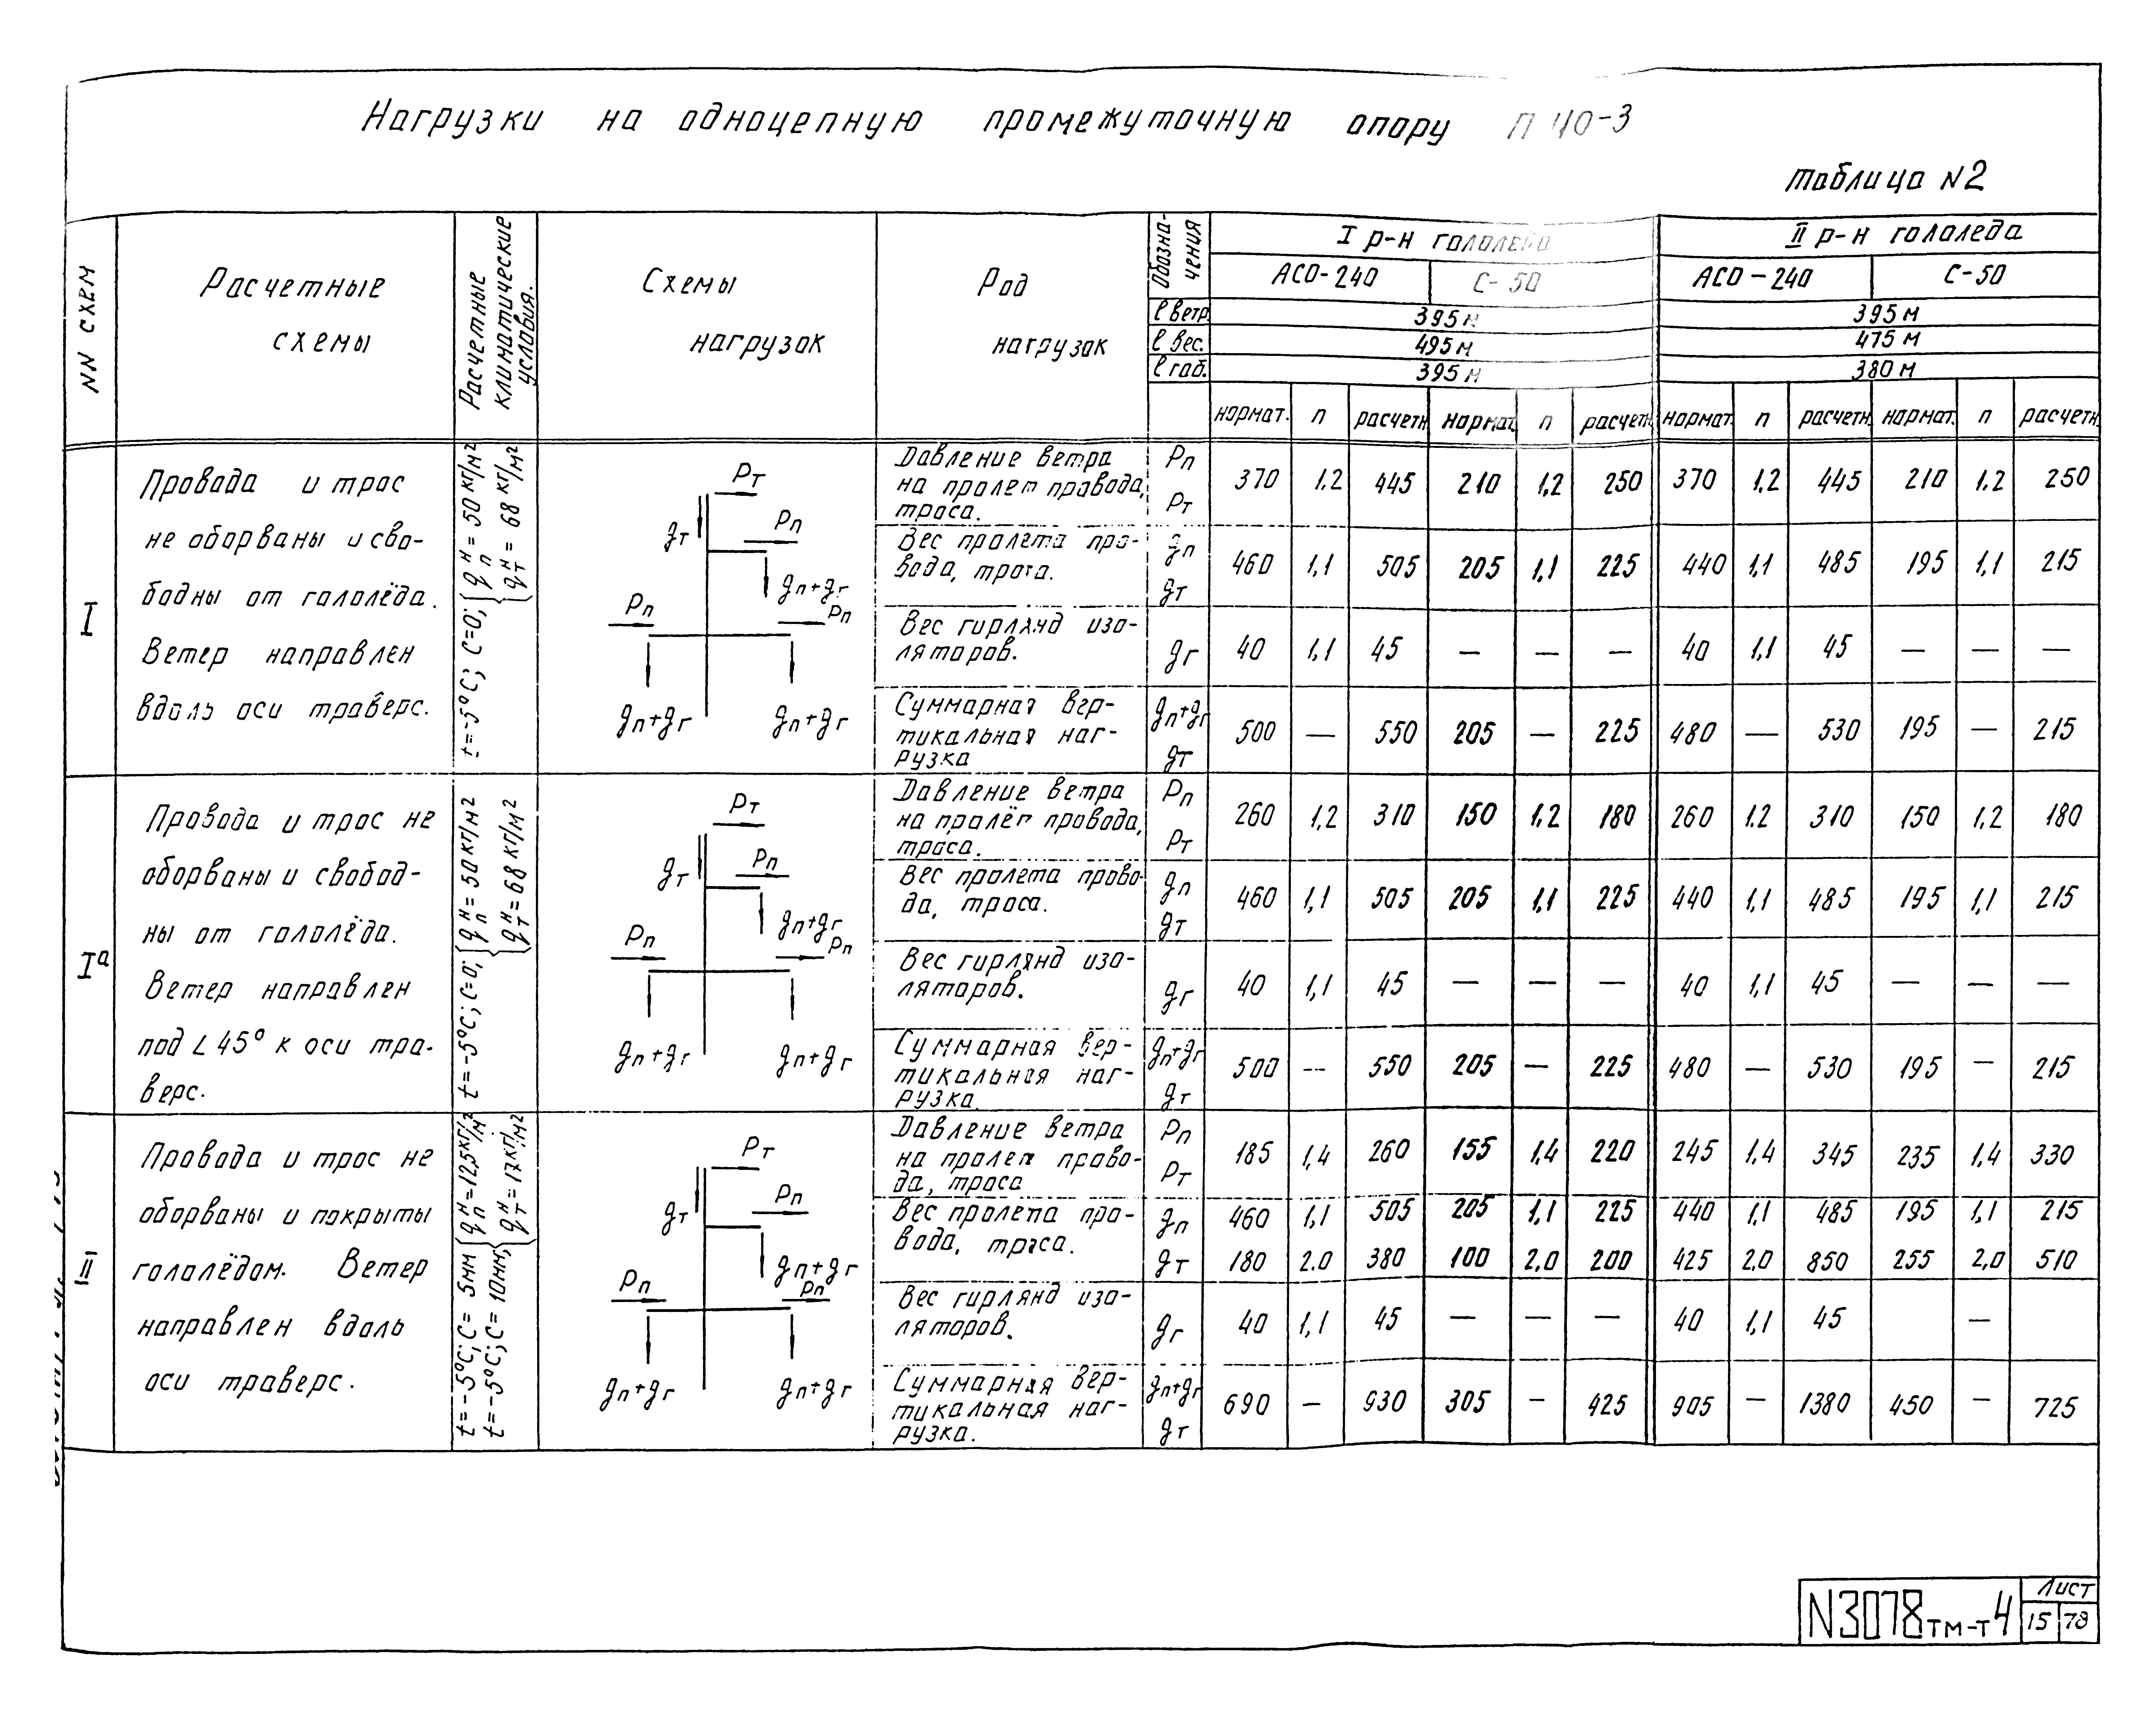 Нагрузки на одноцепную промежуточную опору П 110-3
Таблица N2
NN схем
Расчетные
схемы
Расчетные
климатические
условия.
Схемы
нагрузок
Род
нагрузок
Обозна-
чения
I р-н гололеда
II р-н гололеда
АСО-240 С-50 АСО-240 С-50
l ветр. 395м 395м
l вес. 495м 475м
l габ. 395м 380м
нормат. n расчетн. нормат. n расчетн. нормат. n расчетн. нормат. n расчетн.
I
Провода и трос
не оборваны и сво-
бодны от гололёда.
Ветер направлен
вдоль оси траверс.
t=-5°C; C=0; { qпн = 50 кг/м²
qтн = 68 кг/м²
Pт
gт
Pп
gп+gг
Pп
Pп
gп+gг gп+gг
Давление ветра
на пролет провода,
троса.
Pп
Pт
370 1.2 445 210 1,2 250 370 1,2 445 210 1.2 250
Вес пролета про-
вода, троса.
gп
gт
460 1,1 505 205 1,1 225 440 1,1 485 195 1,1 215
Вес гирлянд изо-
ляторов.
gг
40 1,1 45 — — — 40 1,1 45 — — —
Суммарная вер-
тикальная наг-
рузка
gп+gг
gт
500 — 550 205 — 225 480 — 530 195 — 215
Iа
Провода и трос не
оборваны и свобод-
ны от гололёда.
Ветер направлен
под ∠ 45° к оси тра-
верс.
t=-5°C; C=0; { qпн = 50 кг/м²
qтн = 68 кг/м²
Pт
gт
Pп
gп+gг
Pп
Pп
gп+gг gп+gг
Давление ветра
на пролёт провода,
троса.
Pп
Pт
260 1,2 310 150 1,2 180 260 1.2 310 150 1,2 180
Вес пролета прово-
да, троса.
gп
gт
460 1,1 505 205 1,1 225 440 1,1 485 195 1,1 215
Вес гирлянд изо-
ляторов.
gг
40 1,1 45 — — — 40 1,1 45 — — —
Суммарная вер-
тикальная наг-
рузка.
gп+gг
gт
500 — 550 205 — 225 480 — 530 195 — 215
II
Провода и трос не
оборваны и покрыты
гололёдом. Ветер
направлен вдоль
оси траверс.
t=-5°C; C= 5мм { qпн = 12,5 кг/м²
t=-5°C; C= 10мм; qтн = 17 кг/м²
Pт
gт
Pп
gп+gг
Pп
Pп
gп+gг gп+gг
Давление ветра
на пролет прово-
да, троса
Pп
Pт
185 1,4 260 155 1,4 220 245 1,4 345 235 1,4 330
Вес пролета про-
вода, троса.
gп
gт
460 1,1 505 205 1,1 225 440 1,1 485 195 1,1 215
180 2.0 380 100 2,0 200 425 2,0 850 255 2,0 510
Вес гирлянд изо-
ляторов.
gг
40 1,1 45 — — — 40 1,1 45 —
Суммарная вер-
тикальная наг-
рузка.
gп+gг
gт
690 — 930 305 — 425 905 — 1380 450 — 725
N3078тм-т4
Лист
15 78